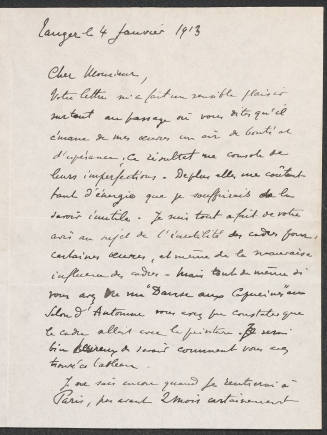 Tanger le 4 Janvier 1913
Cher Monsieur,
Votre lettre m'a fait un sensible plaisir
surtout au passage où vous dites qu'il
émane de mes œuvres un air de bonté et
d'espérance. Ce résultat me console de
leurs imperfections. De plus elles me coûtent
tant d'énergie que je souffrirais de les
savoir inutiles. Je suis tout à fait de votre
avis au sujet de l'inutilité des cadres pour
certaines œuvres, et même de la mauvaise
influence des cadres - mais tout de même si
vous avez vu "Danse aux Capucines" au
Salon d'Automne vous avez pu constater que
le cadre allait avec la peinture. Je serai
bien heureux de savoir comment vous avez
trouvé ce tableau.
Je ne sais encore quand je rentrerai à
Paris, pas avant 2 mois certainement